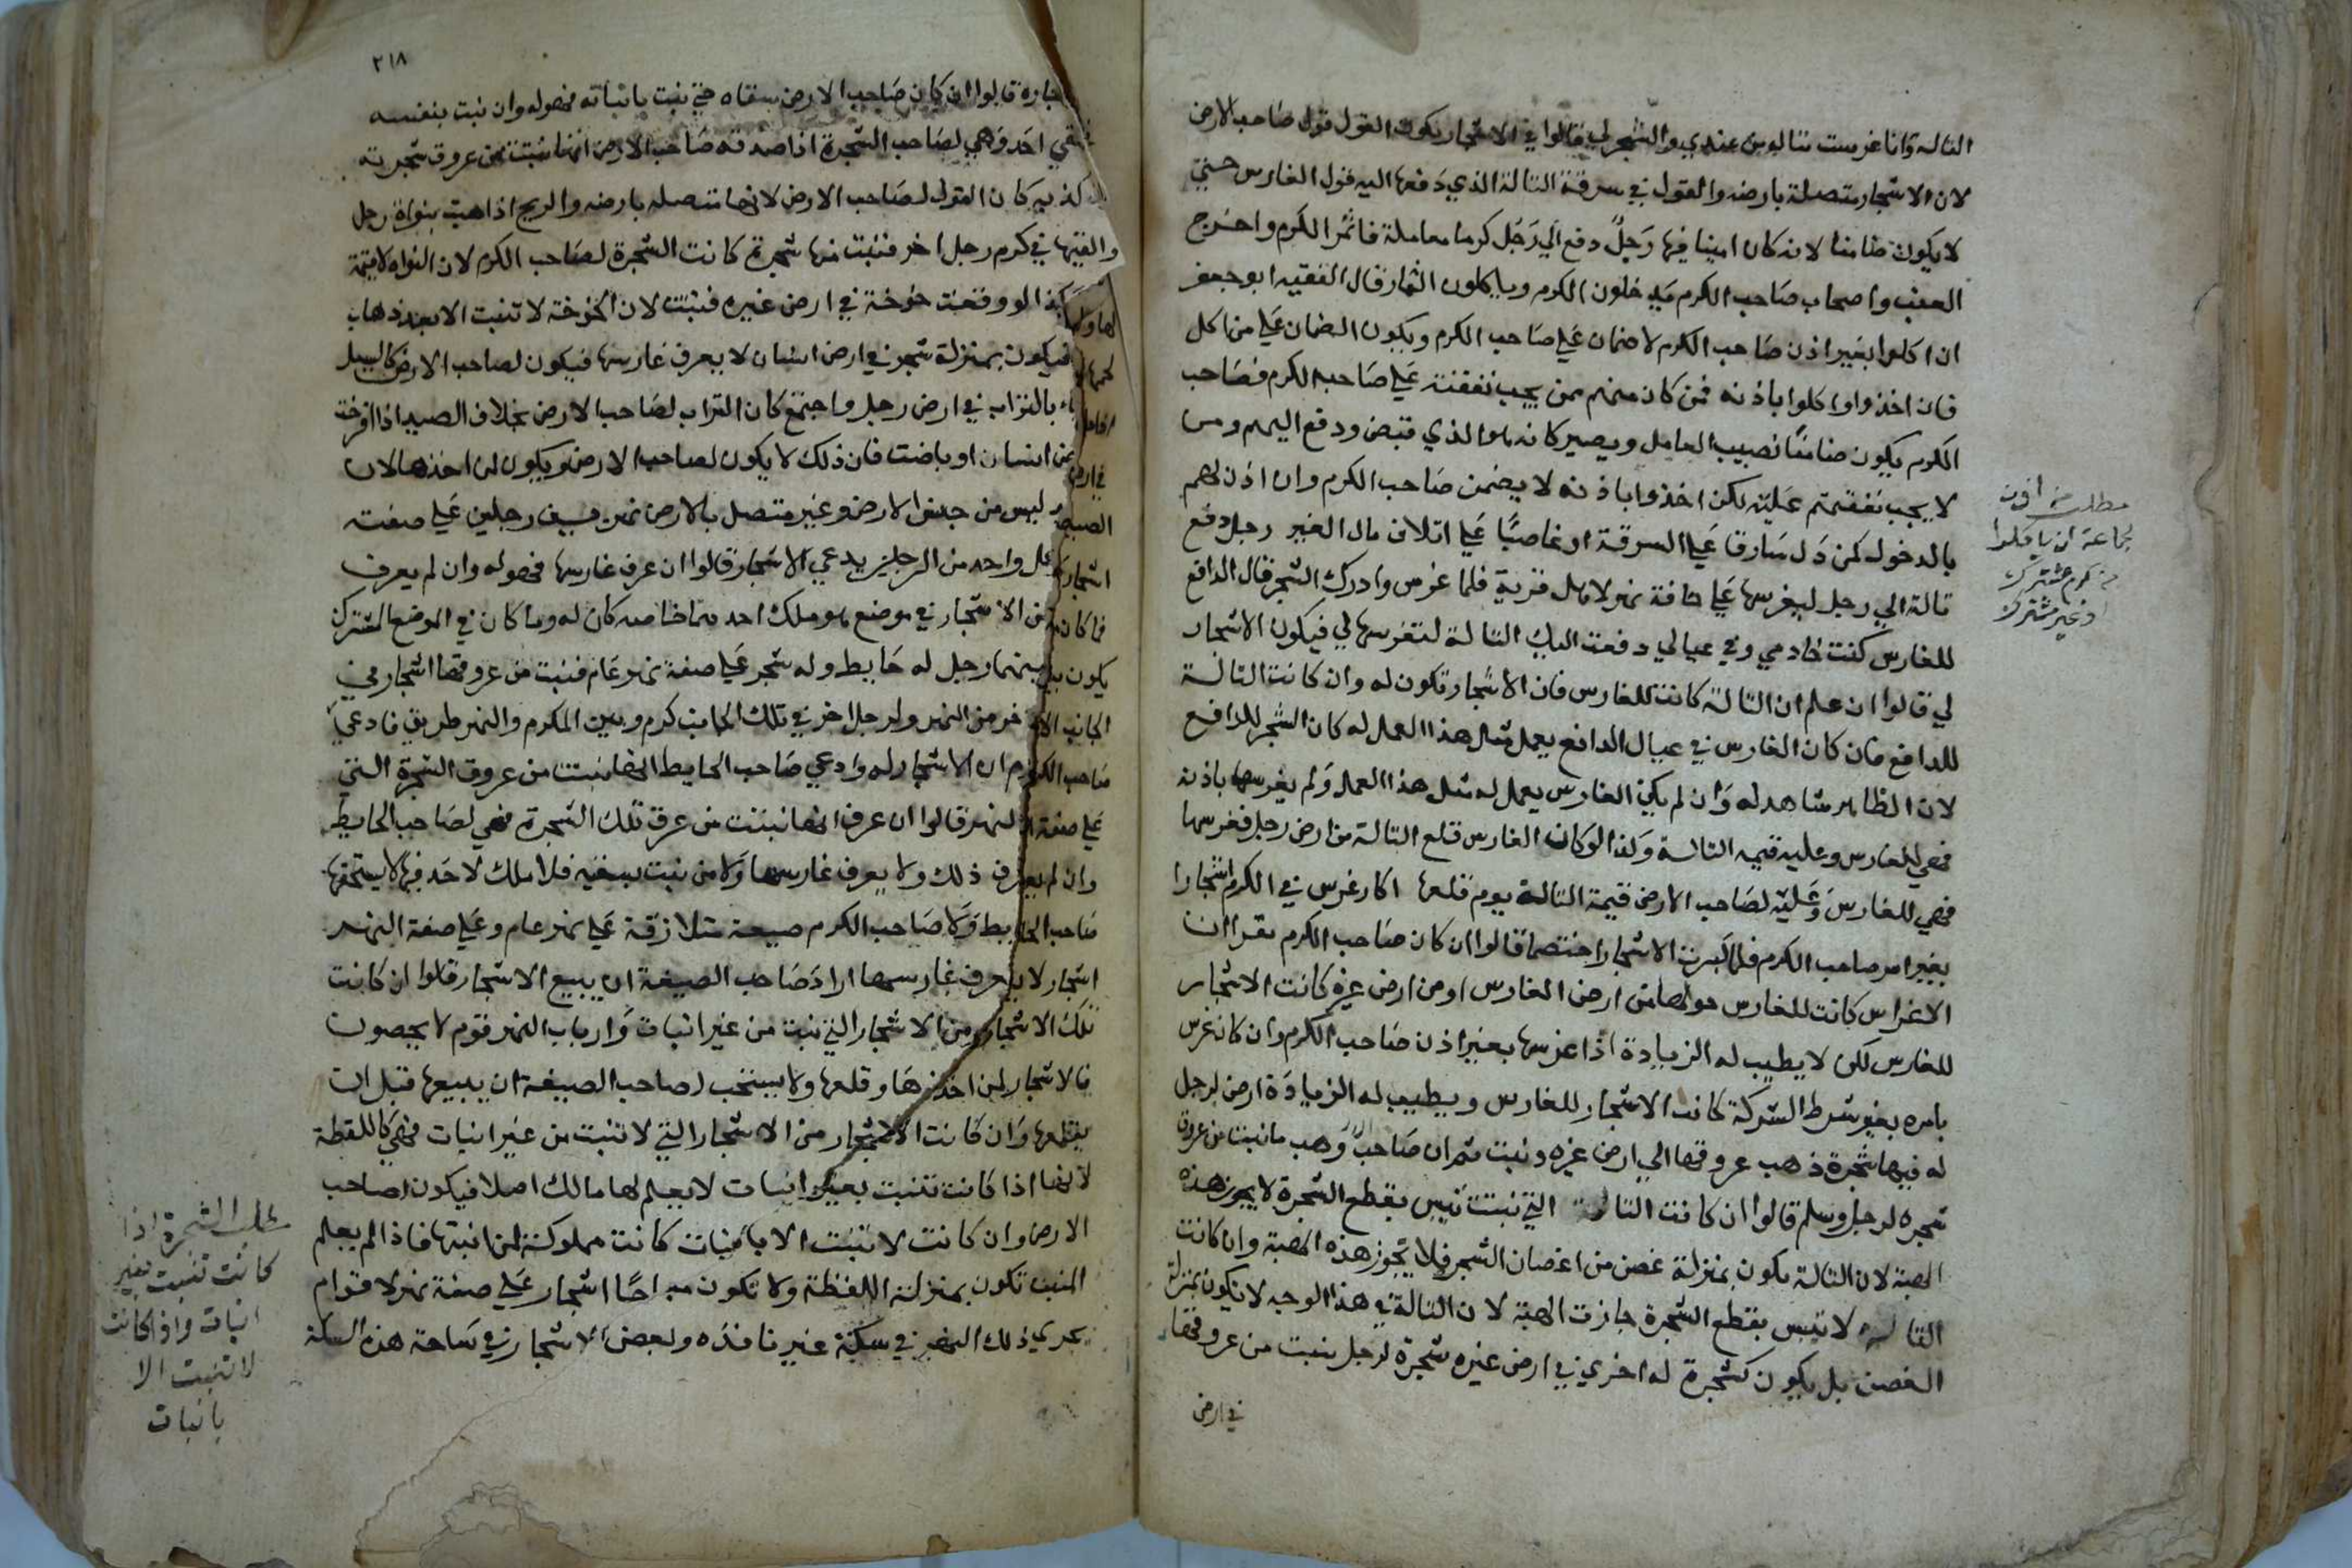 التالة وانا غرست تالة من عندي والشجر لي قالوا في الاشجار يكون القول قول صاحب الارض
لان الاشجار متصلة بارضه والقول في سرقة التالة الذي دفعها اليه قول الغارس حتى
لا يكون ضامنا لانه كان امينا فيها رجل دفع الي رجل كرما معاملة فاثمر الكرم واخرج
العنب واصحاب صاحب الكرم يدخلون الكرم وياكلون الثمار قال الفقيه ابو جعفر
ان اكلوا بغير اذن صاحب الكرم لا ضمان علي صاحب الكرم ويكون الضمان علي من اكل
فان اخذوا واكلوا باذنه فمن كان منهم ممن يجب نفقته علي صاحب الكرم فصاحب
الكرم يكون ضامنا نصيب العامل ويصير كانه هو الذي قبض ودفع اليهم ومن
لا يجب نفقتهم عليه لكن اخذوا باذنه لا يضمن صاحب الكرم وان اذن لهم
بالدخول كمن دل سارقا علي السرقة او غاصبا علي اتلاف مال الغير رجل دفع
تالة الي رجل ليغرسها علي حافة نهر لاهل قرية فلما غرس وادرك الشجر قال الدافع
للغارس كنت خادمي وفي عيالي دفعت اليك التالة لتغرسها لي فيكون الاشجار
لي قالوا ان علم ان التالة كانت للغارس فان الاشجار تكون له وان كانت التالة
للدافع فان كان الغارس في عيال الدافع يعمل مثل هذا العمل له كان الشجر للدافع
لان الظاهر شاهد له وان لم يكن الغارس يعمل له مثل هذا العمل ولم يغرسها باذنه
فهي للغارس وعليه قيمة التالة وكذا لو كان الغارس قلع التالة من ارض رجل فغرسها
فهي للغارس وعليه لصاحب الارض قيمة التالة يوم قلعها اكار غرس في الكرم اشجارا
بغير امر صاحب الكرم فلما كبرت الاشجار اختصما قالوا ان كان صاحب الكرم يقر ان
الاغراس كانت للغارس حولها من ارض الغارس او من ارض غيره كانت الاشجار
للغارس لكن لا يطيب له الزيادة اذا غرسها بغير اذن صاحب الكرم وان كان غرس
بامره بغير شرط الشركة كانت الاشجار للغارس ويطيب له الزيادة ارض لرجل
له فيها شجرة ذهب عروقها الي ارض غيره ونبت ثم ان صاحب وهب ما نبت من عروق
شجره لرجل وسلم قالوا ان كانت التالة التي نبتت تيبس بقطع الشجرة لا يجوز هذه
الهبة لان التالة يكون بمنزلة غصن من اغصان الشجر فلا يجوز هذه الهبة وان كانت
التالة لا تيبس بقطع الشجرة جازت الهبة لان التالة في هذا الوجه لا يكون بمنزلة
الغصن بل يكون كشجرة له اخري في ارض غيره شجرة لرجل ينبت من عروقها
في ارض
مطلب في اذن
لجماعة ان ياكلوا
من كرم مشترك
او غير مشترك
٢١٨
جاره قالوا ان كان صاحب الارض سقاه حتي نبت بانباته فهو له وان نبت بنفسه
احد فهي لصاحب الشجرة اذا صدقه صاحب الارض انها نبتت من عروق شجرته
كذبه كان القول لصاحب الارض لانها متصله بارضه والريح اذا هبت بنواة رجل
والقتها في كرم رجل اخر فنبت منها شجرة كانت الشجرة لصاحب الكرم لان النواة لا قيمة
لها وكذا لو وقعت خوخة في ارض غيره فنبتت لان الخوخة لا تنبت الا بعد ذهاب
لحمها فيكون بمنزلة شجر في ارض انسان لا يعرف غارسها فيكون لصاحب الارض كالسيل
اذا جاء بالتراب في ارض رجل واجتمع كان التراب لصاحب الارض بخلاف الصيد اذا افرخت
في ارض انسان او باضت فان ذلك لا يكون لصاحب الارض ويكون لمن اخذها لان
الصيد ليس من جنس الارض وغير متصل بالارض نهر بين رجلين علي ضفته
اشجار كل واحد من الرجلين يدعي الاشجار قالوا ان عرف غارسها فهو له وان لم يعرف
فما كان من الاشجار في موضع هو ملك احدهما خاصه كان له وما كان في الموضع المشترك
يكون بينهما رجل له حايط وله شجر علي ضفة نهر عام فنبت من عروقها اشجار في
الجانب الاخر من النهر ولرجل اخر في تلك الجانب كرم وبين الكرم والنهر طريق فادعي
صاحب الكرم ان الاشجار له وادعي صاحب الحايط انها نبتت من عروق الشجرة التي
علي ضفة النهر قالوا ان عرف انها نبتت من عرق تلك الشجرة فهي لصاحب الحايط
وان لم يعرف ذلك ولا يعرف غارسها ولا من نبت بسقيه فلا ملك لاحد فيها لا يستحقها
صاحب الحايط ولا صاحب الكرم ضيعة متلازقة علي نهر عام وعلي ضفة النهر
اشجار لا يعرف غارسها اراد صاحب الضيعة ان يبيع الاشجار قالوا ان كانت
تلك الاشجار من الاشجار التي تنبت من غير انبات وارباب النهر قوم لا يحصون
فالاشجار لمن اخذها وقلعها ولا يستحب لصاحب الضيعة ان يبيعها قبل ان
يقلعها وان كانت الاشجار من الاشجار التي لا تنبت من غير انبات فهي كاللقطة
لانها اذا كانت تنبت بغير انبات لا يعلم لها مالك اصلا فيكون لصاحب
الارض وان كانت لا تنبت الا بانبات كانت مملوكة لمن انبتها فاذا لم يعلم
المنبت تكون بمنزلة اللقطة ولا تكون مباحا اشجار علي ضفة نهر لاقوام
يجري ذلك النهر في سكة غير نافذه وبعض الاشجار في ساحة هذه السكة
مطلب الشجرة اذا
كانت تنبت بغير
انبات واذا كانت
لا تنبت الا
بانبات